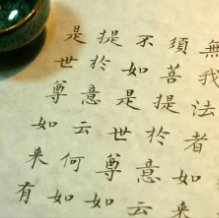 無我法者如来
須菩提於意云
不如是世尊如
提於意云何如
是世尊如来有